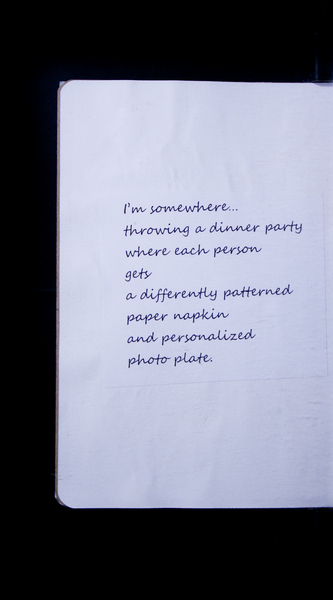 I'm somewhere...
throwing a dinner party
where each person
gets
a differently patterned
paper napkin
and personalized
photo plate.